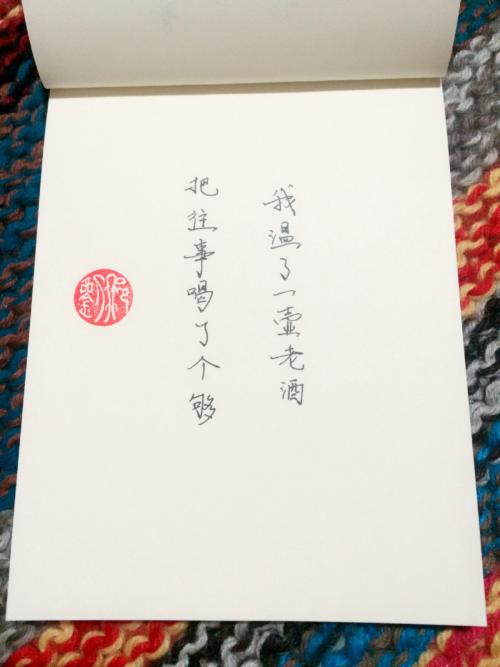 我温了一壶老酒
把往事喝了个够